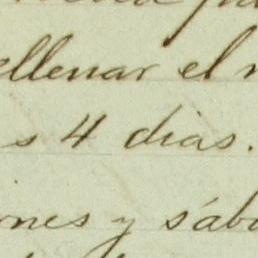 ellenar el
s 4 dias.
nes y sáb